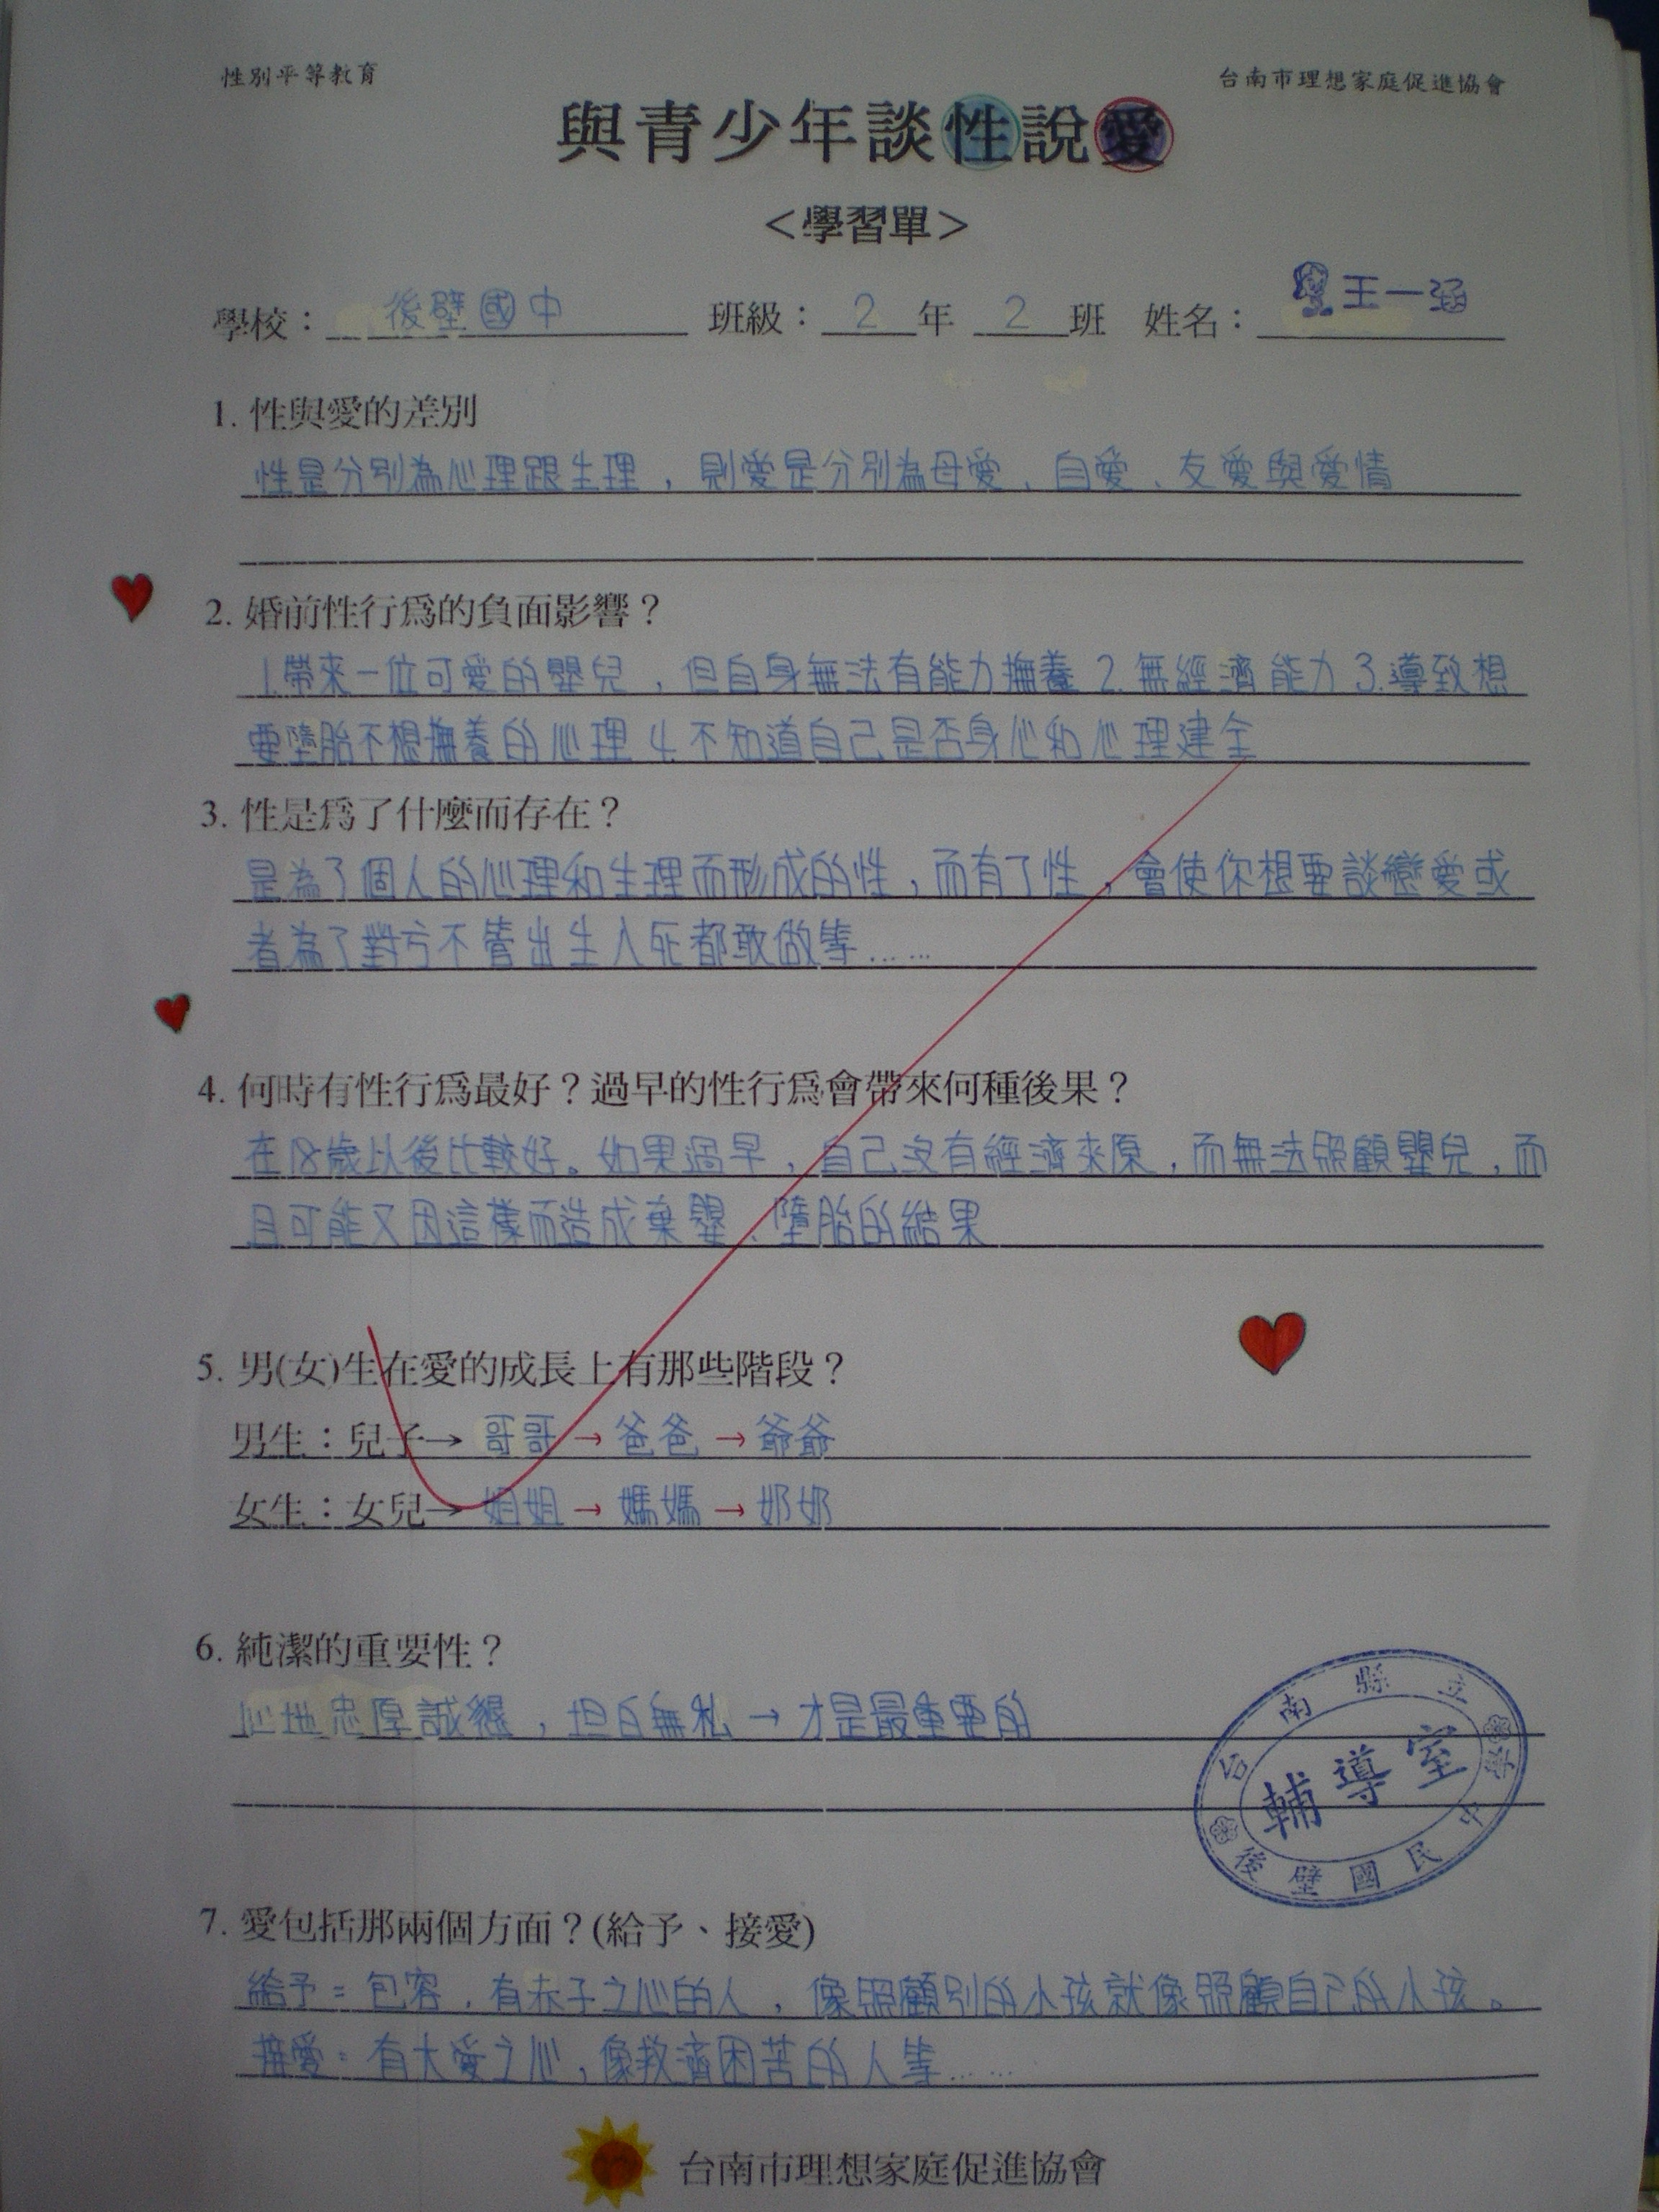 性別平等教育 台南市理想家庭促進協會
與青少年談性說愛
<學習單>
學校：後壁國中 班級：2年2班 姓名：王一涵
1. 性與愛的差別
性是分別為心理跟生理，則愛是分別為母愛、自愛、友愛與愛情
2. 婚前性行為的負面影響？
1.帶來一位可愛的嬰兒，但自身無法有能力撫養 2.無經濟能力 3.導致想
要墮胎不想撫養的心理 4.不知道自己是否身心和心理建全
3. 性是為了什麼而存在？
是為了個人的心理和生理而形成的性，而有了性，會使你想要談戀愛或
者為了對方不管出生入死都敢做等……
4. 何時有性行為最好？過早的性行為會帶來何種後果？
在18歲以後比較好。如果過早，自己沒有經濟來原，而無法照顧嬰兒，而
且可能又因這樣而造成棄嬰、墮胎的結果
5. 男(女)生在愛的成長上有那些階段？
男生：兒子→哥哥→爸爸→爺爺
女生：女兒→姐姐→媽媽→奶奶
6. 純潔的重要性？
心地忠厚誠懇，坦白無私→才是最重要的
台南縣立後壁國民中學
輔導室
7. 愛包括那兩個方面？(給予、接愛)
給予=包容，有赤子之心的人，像照顧別的小孩就像照顧自己的小孩。
接愛：有大愛之心，像救濟困苦的人等……
台南市理想家庭促進協會